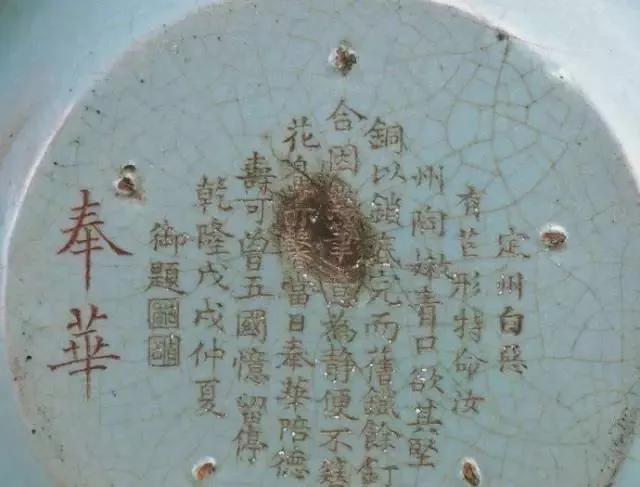 定州白惡
有芒形特命汝
州陶嫩青口欲其堅
銅以鎖底完而舊鐵餘釘
合因筆意為靜便不簪
花香亦馨當日奉華陪德
壽可曾五國憶留停
乾隆戊戌仲夏
御題
奉華